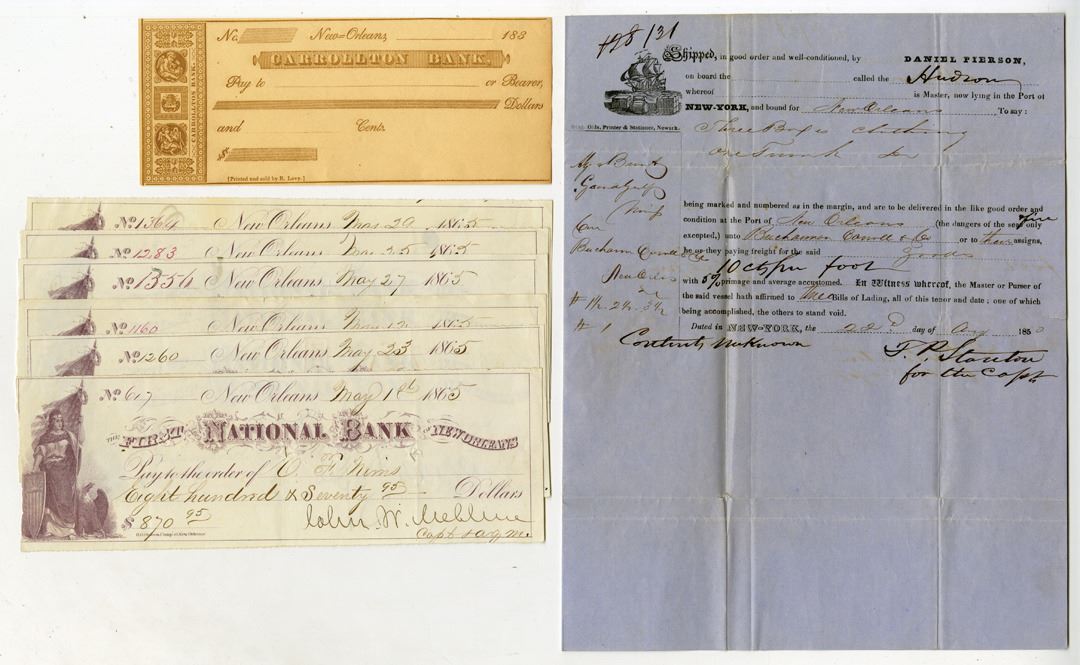 No. New-Orleans, 183
CARROLLTON BANK,
Pay to or Bearer,
Dollars
and Cents.
$
[Printed and sold by B. Levy.]
CARROLLTON BANK.
No 1364 New Orleans 29 1865
No 1283 New Orleans 25 1865
No 1356 New Orleans May 27 1865
No 1160 New Orleans 12 1865
No 1260 New Orleans May 23 1865
No 617 New Orleans May 1865
THE FIRST NATIONAL BANK OF NEW ORLEANS
Pay to the order of O. F. Nims
Eight hundred & Seventy 95 Dollars
$ 870 95 John W.
Capt & aqm.
Shipped, in good order and well-conditioned, by DANIEL PIERSON,
on board the called the Hudson
whereof is Master, now lying in the Port of
NEW-YORK, and bound for New Orleans To say:
Printer & Stationer, Newark.
Three Boxes clothing
One Trunk
being marked and numbered as in the margin, and are to be delivered in the like good order and
condition at the Port of New Orleans (the dangers of the sea fire only
excepted,) unto Buchannan Carroll & Co or to their assigns,
he or they paying freight for the said goods
10 cts per foot
with 5% primage and average accustomed. In Witness whereof, the Master or Purser of
the said vessel hath affirmed to Bills of Lading, all of this tenor and date; one of which
being accomplished, the others to stand void.
Dated in NEW-YORK, the 22 day of Aug 185
Contents Unknown
for the Capt
Miss
Buchann Carroll & Co
New Orleans